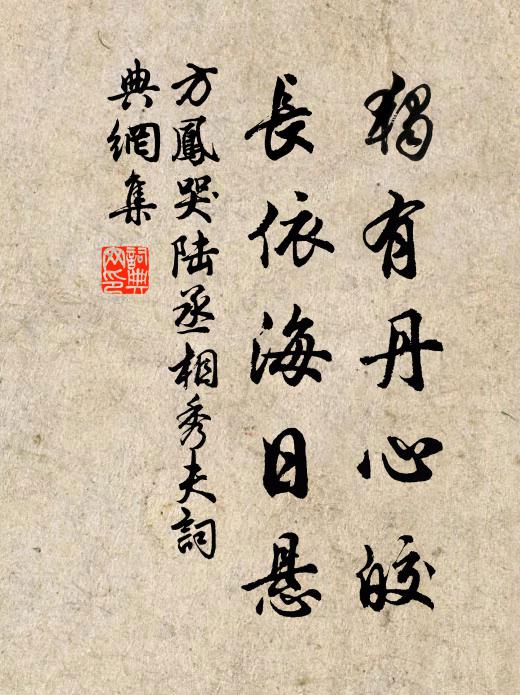 獨有丹心皎
長依海日悬
方鳳哭陆丞相秀夫詞
典網集
詞典